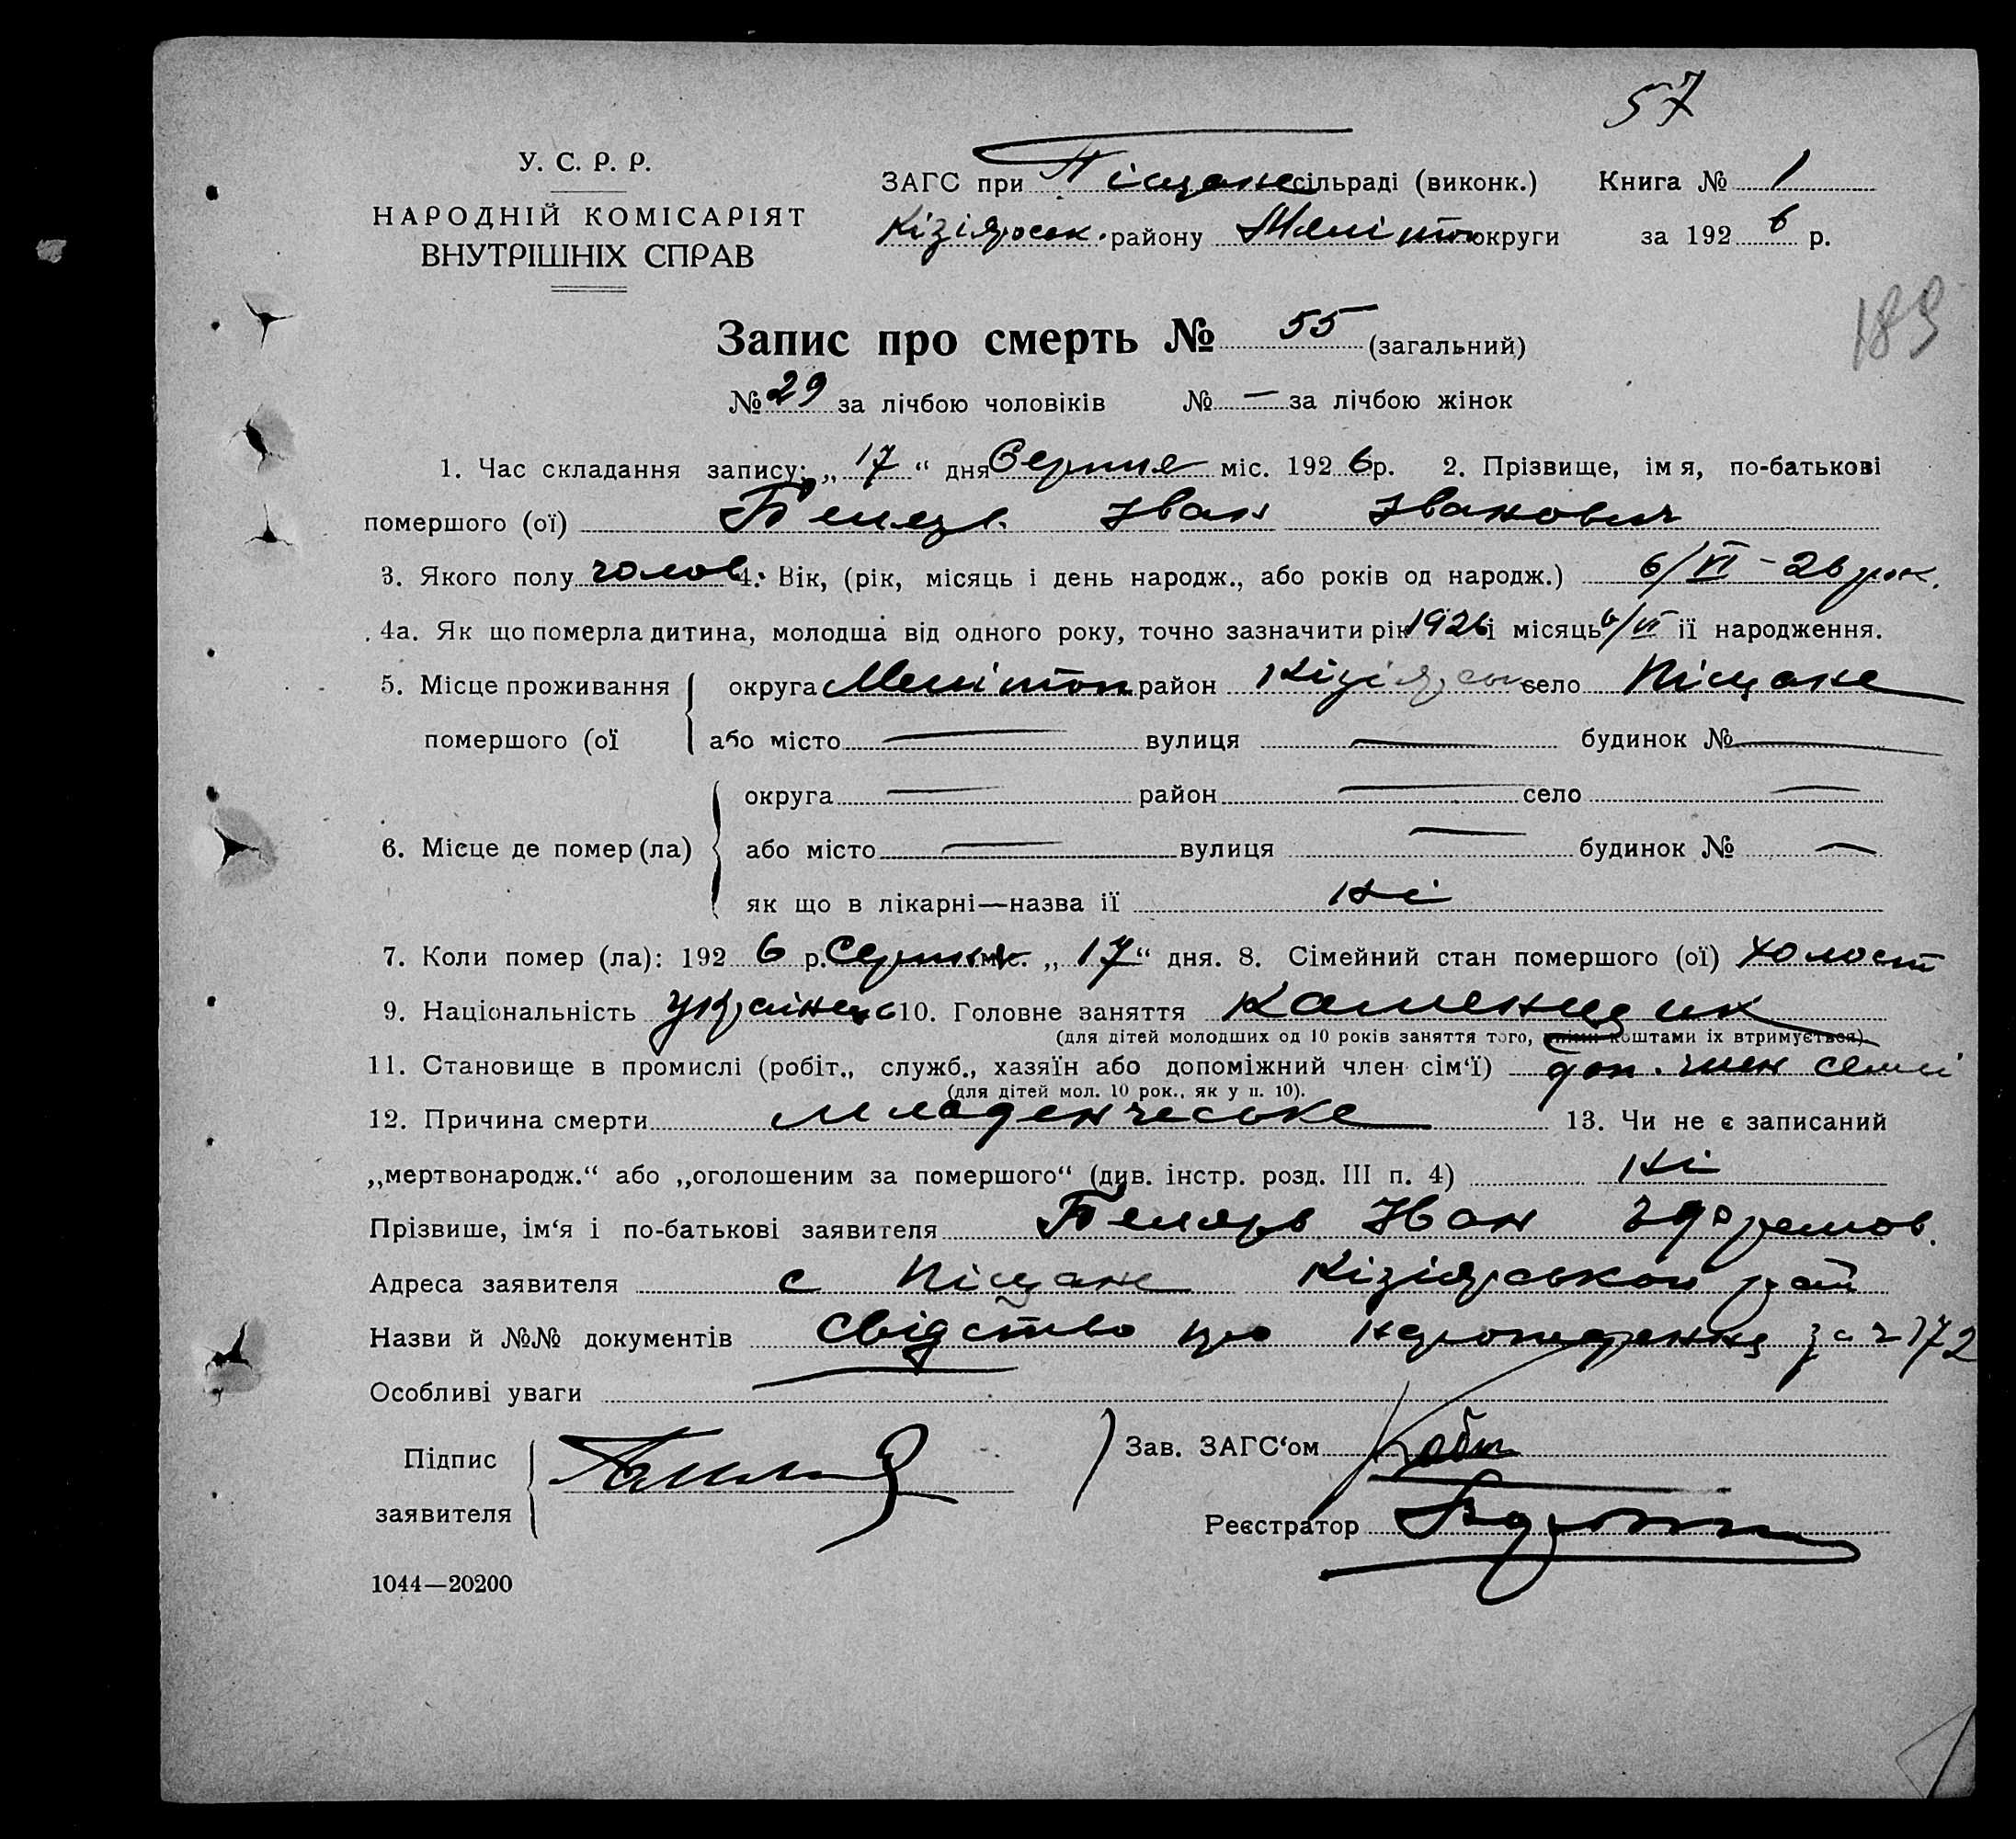 57
У. С. Р. Р.
НАРОДНІЙ КОМІСАРІЯТ
ВНУТРІШНІХ СПРАВ
ЗАГС при Піщане сільраді (виконк.) Книга № 1
Кізіярськ. району Мелітоп округи за 1926 р.
189
Запис про смерть № 55 (загальний)
№ 29 за лічбою чоловіків № — за лічбою жінок
1. Час складання запису: „ 17 “ дня Серпня міс. 1926 р. 2. Прізвище, імя, по-батькові
помершого (ої) Іван Іванович
3. Якого полу чолов 4. Вік, (рік, місяць і день народж., або років од народж.) 6/VI - 26 рок.
4а. Як що померла дитина, молодша від одного року, точно зазначити рік 1926 і місяць 6/VI її народження.
5. Місце проживання округа Мелітоп район Кізіярськ село Піщане
помершого (ої або місто — вулиця — будинок № —
округа — район — село —
6. Місце де помер (ла) або місто — вулиця — будинок № —
як що в лікарні—назва її ні
7. Коли помер (ла): 1926 р. Серпня міс. „ 17 “ дня. 8. Сімейний стан помершого (ої) холост
9. Національність 10. Головне заняття Каменщик
(для дітей молодших од 10 років заняття того, коштами їх втримується).
11. Становище в промислі (робіт., служб., хазяїн або допоміжний член сім‘ї) доп. член семьі
(для дітей мол. 10 рок., як у п. 10).
12. Причина смерти младенчеське 13. Чи не є записаний
„мертвонародж.“ або „оголошеним за помершого“ (див. інстр. розд. III п. 4) ні
Прізвише, ім‘я і по-батькові заявителя Іван
Адреса заявителя с Піщане Кізіярського рай
Назви й №№ документів Свідство про нарождення за № 172
Особливі уваги
Підпис
заявителя
Зав. ЗАГС‘ом
Реєстратор
1044—20200